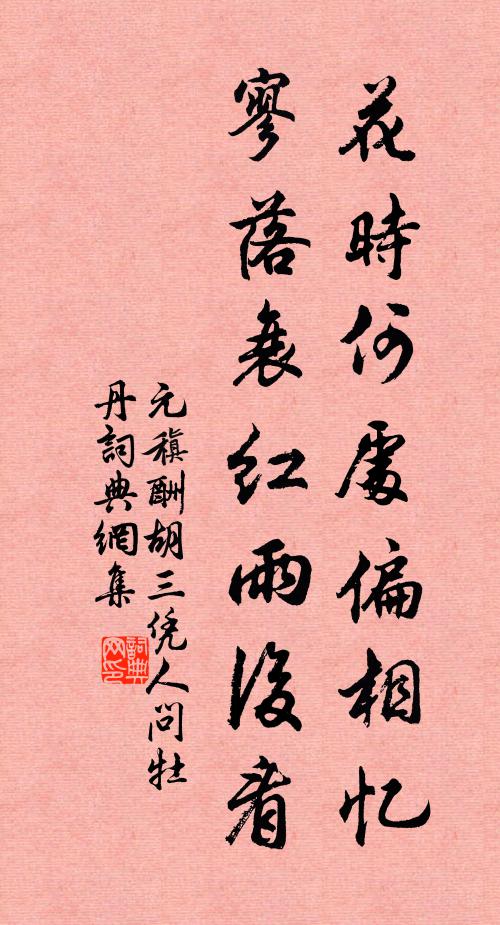 花時何處偏相忆
寥落衰红雨後看
元稹酬胡三凭人問牡
丹詞典網集
詞典
网印